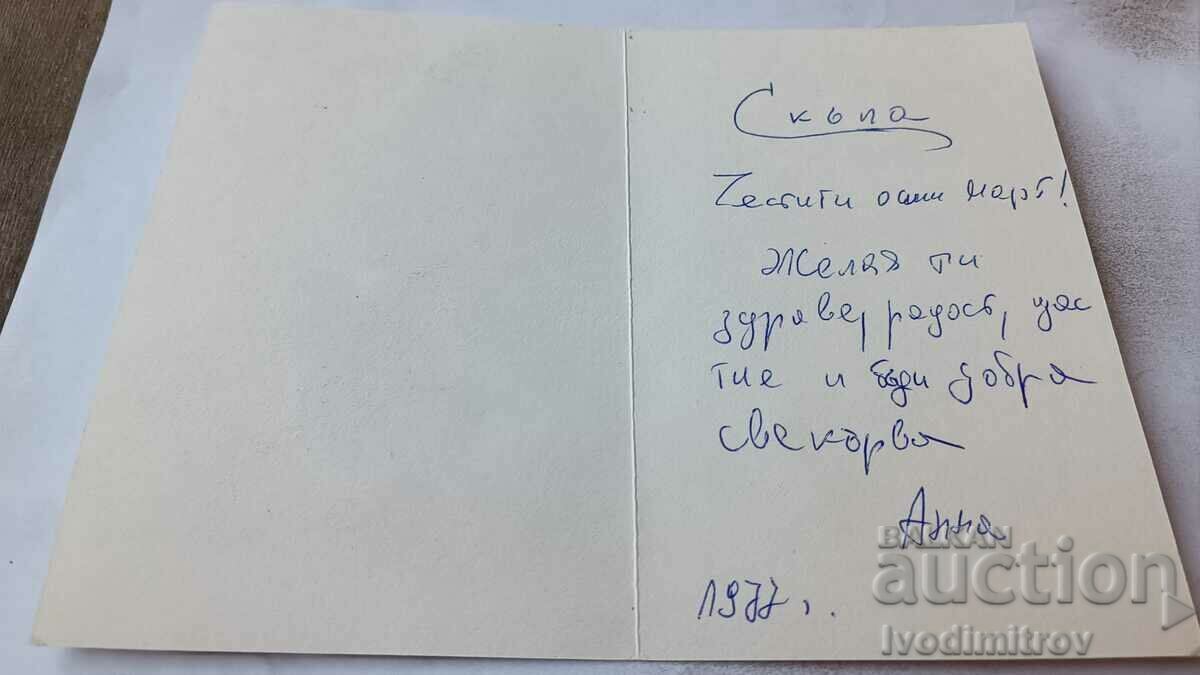 Скъпа
Честити осми март!
Желая ти
здраве, радост, щас
тие и бъди добра
свекърва
Анна
1977 г.
BALKAN
auction
Ivodimitrov